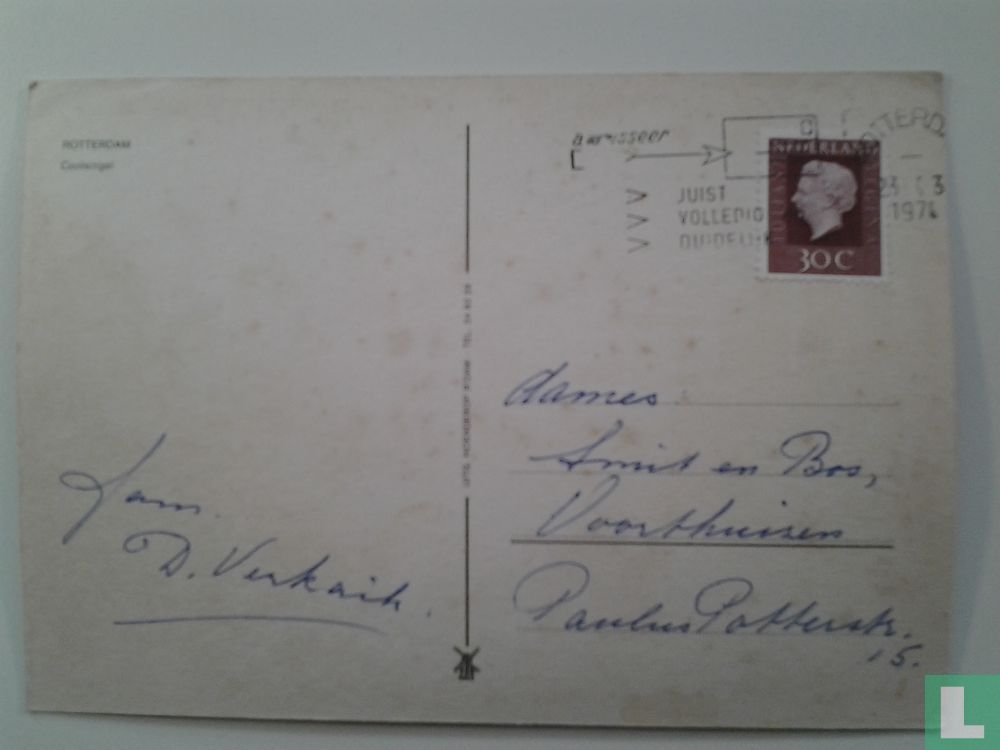 ROTTERDAM
Coolsingel
adresseer
JUIST
VOLLEDIG
DUIDELIJK
ROTTERDA
1974
NEDERLAND
JULIANA REGINA
30 C
TEL.
dames
Smit en Bos,
Voorthuizen
Paulus Potterstr.
15.
Fam.
D. Verkaik.
L